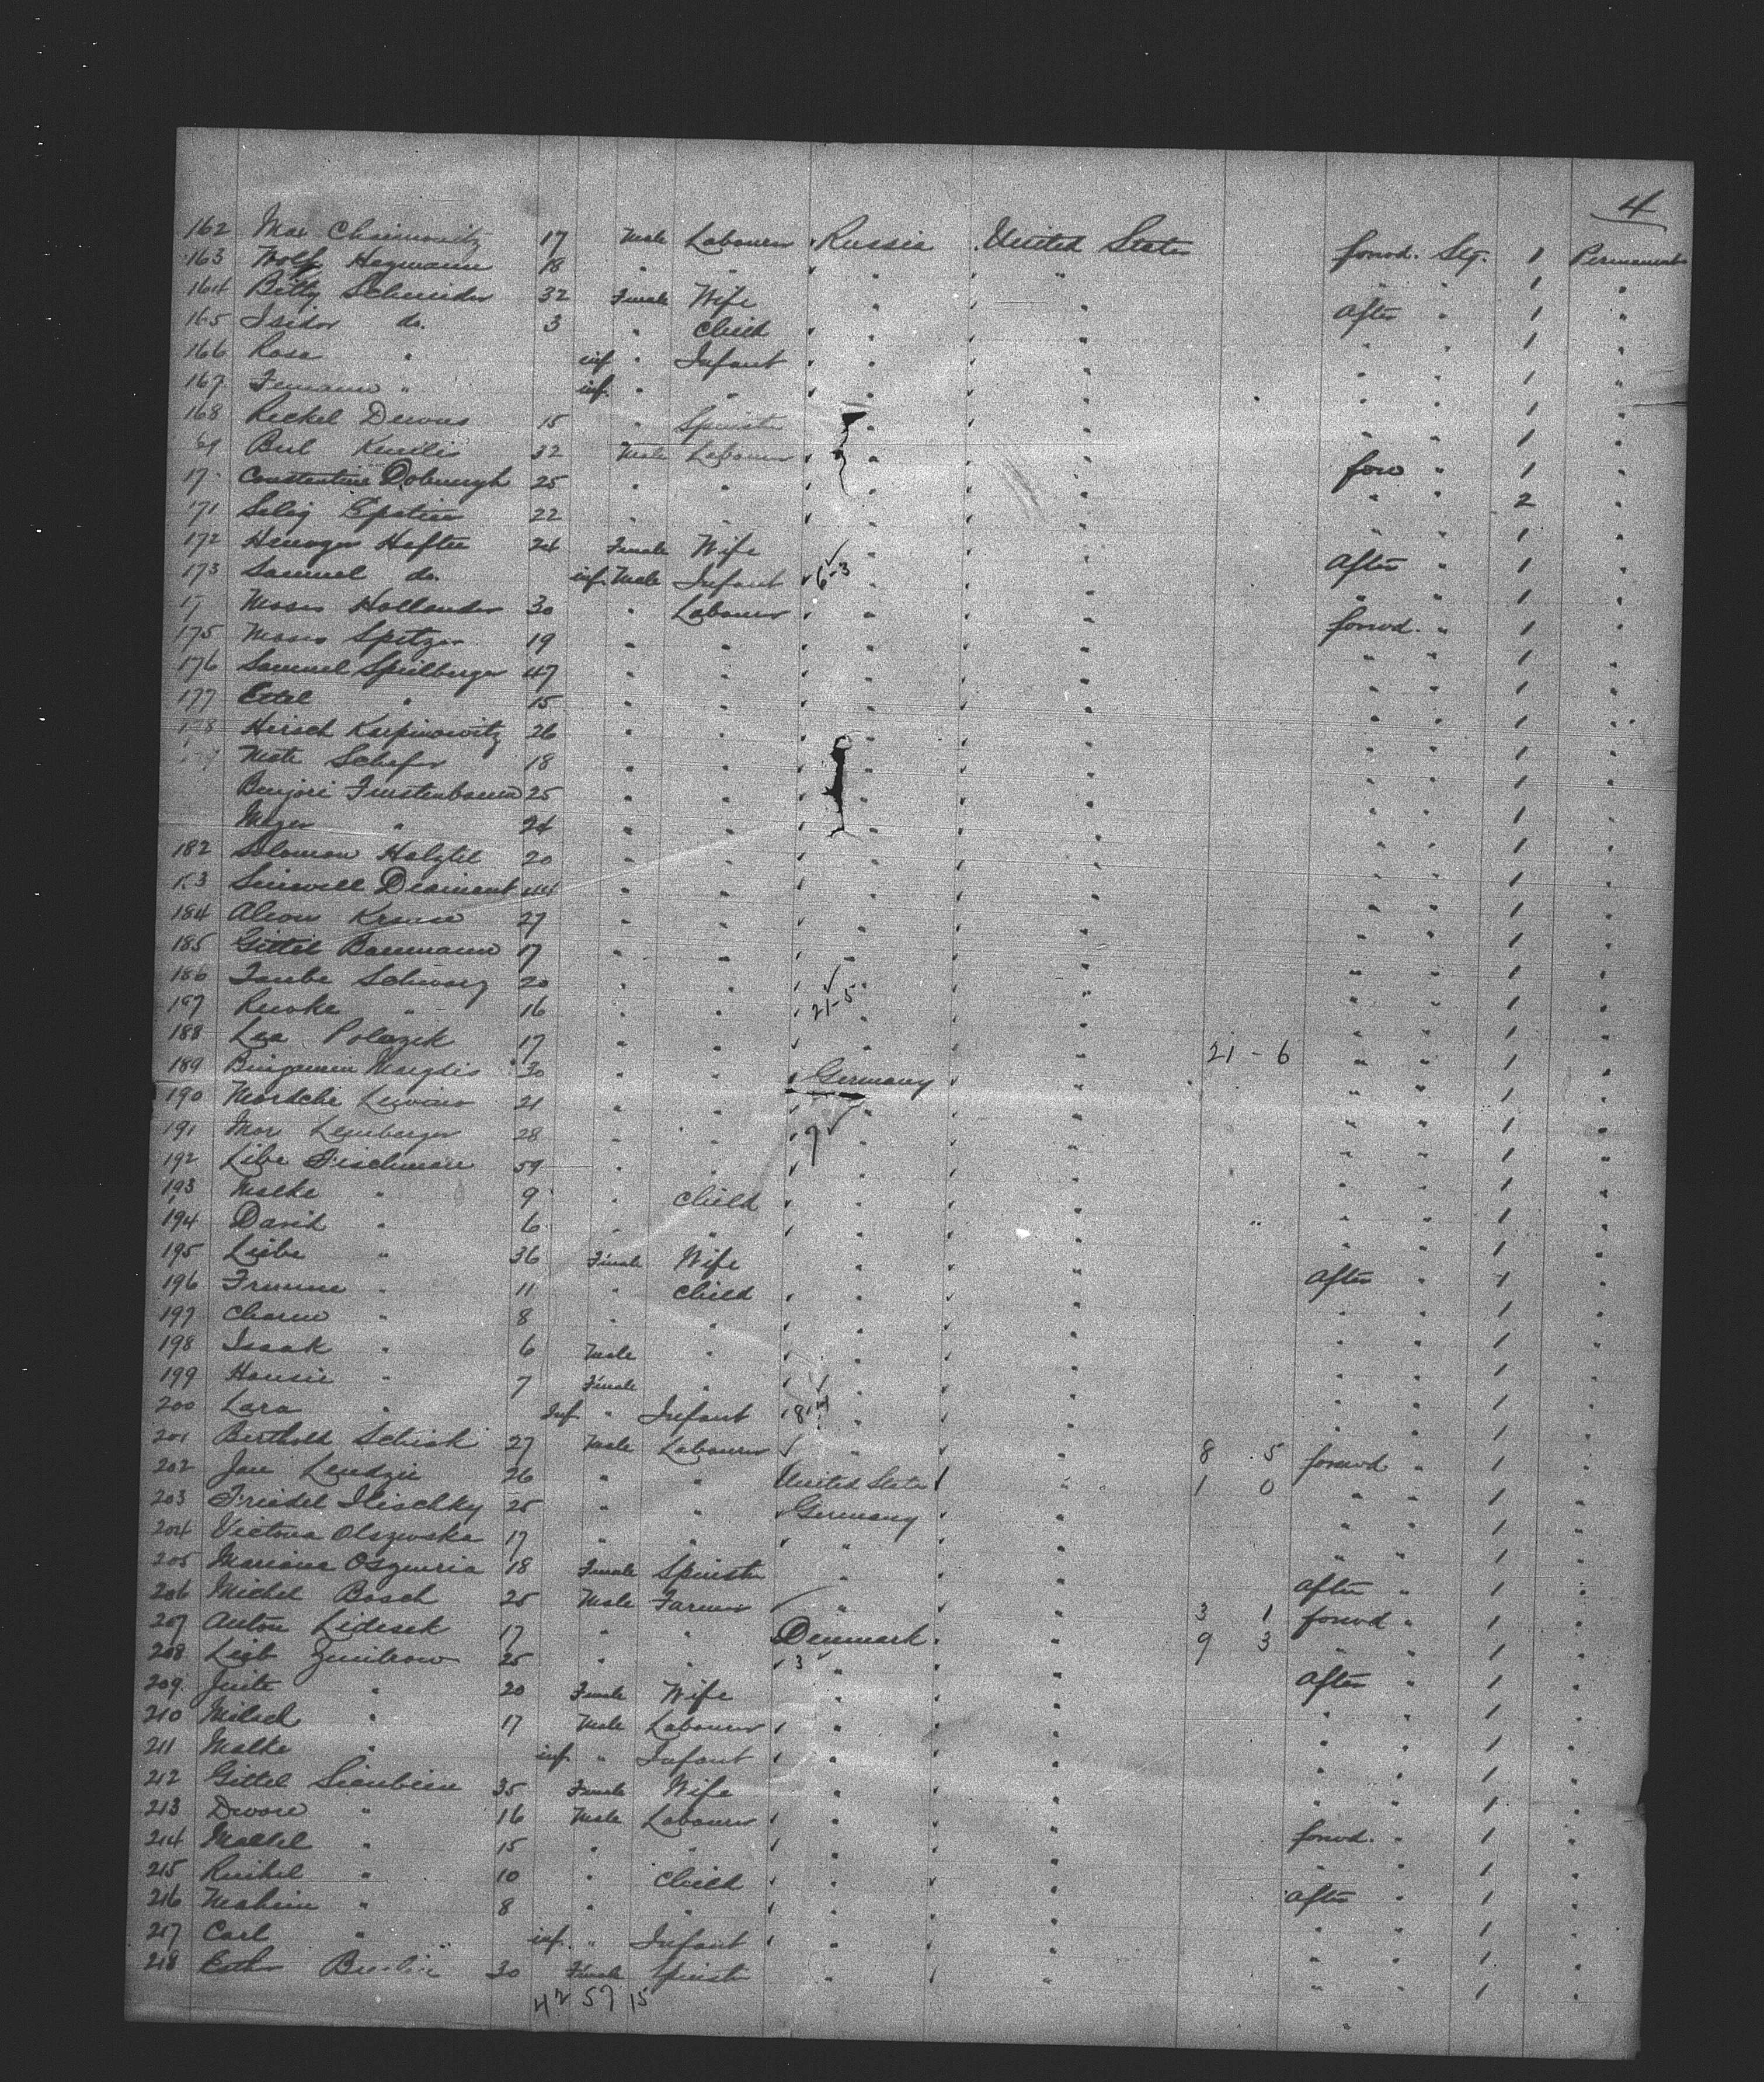 4
162 Max Chaimowitz 17 Male Labourer Russia United States forwd. Stg. 1 Permanent
163 Wolf Hegmann 18 " " " " " " 1 "
164 Betty Schneider 32 Female Wife " " After " 1 "
165 Isidor do. 3 " Child " " " " 1 "
166 Rosa " inf " Infant " " " " 1 "
167 " inf. " " " " " " 1 "
168 Reckel 15 " Spinster " " " " 1 "
69 32 Male Labourer " " forw " 1 "
17 Constantine 25 " " " " " " 2 "
171 Selig Epstein 22 " " " " " " 1 "
172 Hefter 24 Female Wife " " After " 1 "
173 Samuel do. inf. Male Infant 6-3 " " " " 1 "
17 Moses Hollander 30 " Labourer " " forwd. " 1 "
175 Moses Spetzer 19 " " " " " " 1 "
176 Samuel Spielberger 47 " " " " " " 1 "
177 Ettel " 15 " " " " " " 1 "
178 Hirsch Karpinowitz 26 " " " " " " 1 "
Schefer 18 " " " " " " 1 "
Furstenbaum 25 " " " " " " 1 "
Meyer " 24 " " " " " " 1 "
182 Solomon Holztel 20 " " " " " " 1 "
183 Diamant 44 " " " " " " 1 "
184 Krause 27 " " " " " " 1 "
185 Gittel Baumann 17 " " " " " " 1 "
186 Taube Schwarz 20 " " " " " " 1 "
187 Rewke " 16 " " 21-5 " " " " 1 "
188 Lea Polazek 17 " " " " 21-6 " " 1 "
189 30 " " Germany " " " 1 "
190 Mordche 21 " " " " " " 1 "
191 Max Lemberger 28 " " 7 " " " " 1 "
192 Libe Fischmann 59 " " " " " " 1 "
193 Malke " 9 " Child " " " " 1 "
194 David " 6 " " " " " " 1 "
195 Liebe " 36 Female Wife " " After " 1 "
196 Frume " 11 " Child " " " " 1 "
197 " 8 " " " " " " 1 "
198 Isaak " 6 Male " " " " " 1 "
199 Hansie " 7 Female " " " " " 1 "
200 Lara " Inf. " Infant 8-4 " " " " 1 "
201 Berthold Schick 27 Male Labourer " " 8 5 forwd " 1 "
202 Jan 26 " " United States " 1 0 " " 1 "
203 Friedel Ilischky 25 " " Germany " " " 1 "
204 Victoria Olszewska 17 " " " " " " 1 "
205 Mariana 18 Female Spinster " " After " 1 "
206 Michel Bosch 25 Male Farmer " " 3 1 forwd " 1 "
207 Anton 17 " " Denmark " 9 3 " " 1 "
208 Leib 25 " " 3 " " After " 1 "
209 " 20 Female Wife " " " " 1 "
210 " 17 Male Labourer " " " " 1 "
211 Malke " inf. " Infant " " " " 1 "
212 Gittel 35 Female Wife " " " " 1 "
213 " 16 Male Labourer " " forwd. " 1 "
214 " 15 " " " " " " 1 "
215 " 10 " Child " " After " 1 "
216 " 8 " " " " " " 1 "
217 Carl " inf. " Infant " " " " 1 "
218 30 Female Spinster " " " " 1 "
42 57 15